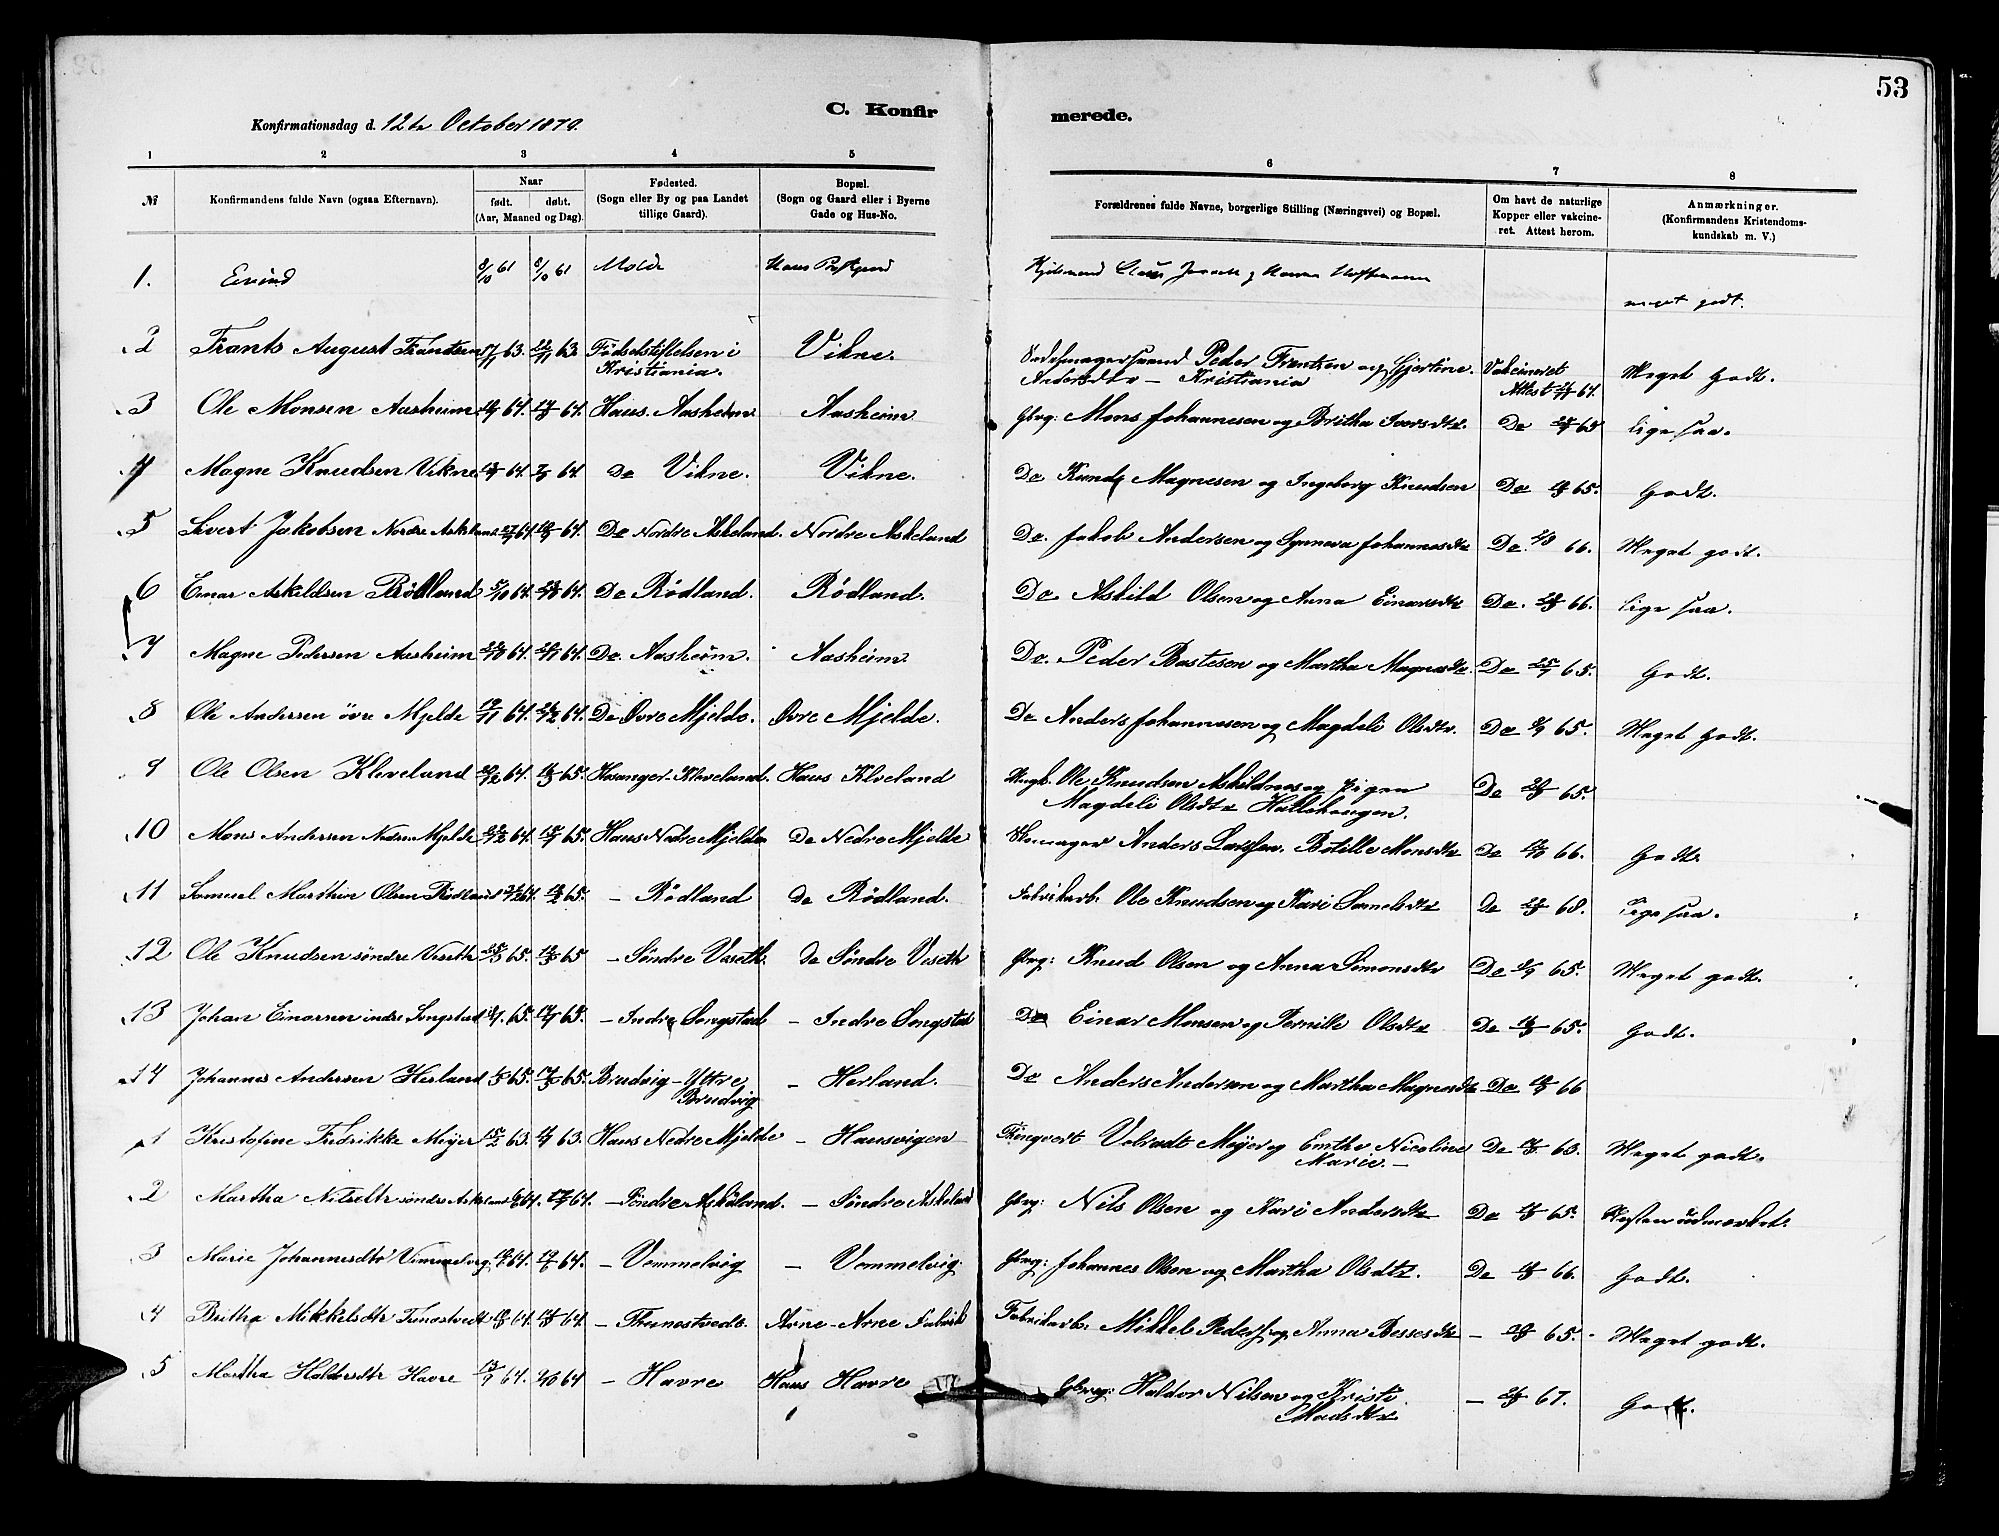 53
C. Konfirmerede.
Konfirmationsdag d. 12te October 1879.
1 2 3 4 5 6 7 8
№ Konfirmandens fulde Navn (ogsaa Efternavn). Naar født. døbt. (Aar, Maaned og Dag). Fødested. (Sogn eller By og paa Landet tillige Gaard). Bopæl. (Sogn og Gaard eller i Byerne Gade og Hus-No. Forældrenes fulde Navne, borgerlige Stilling (Næringsvei) og Bopæl. Om havt de naturlige Kopper eller vakcineret. Attest herom. Anmærkninger. (Konfirmandens Kristendomskundskab m. V.)
1. Eivind 8/10 61 Molde Haus meget godt.
2 Frants August Frandsen 63. 63 Fødselstiftelsen i Kristiania. Vikne. Peder Frentzen og Gjertine Andersdtr – Kristiania Vakcineret Attest 64. Meget Godt.
3 Ole Monsen Aasheim 64. 64. Haus. Aasheim Aasheim Gbrg: Mons Johannesen og Britha Iversdtr. Do 65 lige saa.
4 Magne Knudsen Vikne 64. 64. Do Vikne. Vikne. Do Knud Magnesen og Ingeborg Knudsen Do 65. Godt.
5 Sivert Jakobsen Nordre Askeland 64. 64. Do Nordre Askeland. Nordre Askeland Do. Jakob Andersen og Synneva Johannesdtr Do. 66. Meget godt.
6 Einar Askeldsen Rødland 5/10 64. 64. Do Rödland. Rödland. Do Askild Olsen og Anna Einarsdtr Do. 66. lige saa.
7 Magne Pedersen Aasheim 64. 64. Do. Aasheim. Aasheim Do. Peder Bastesen og Martha Magnesdtr. Do 65. Godt.
8 Ole Andersen övre Mjelde 64. 64. Do Øvre Mjelde. Øvre Mjelde. Do Anders Johannesen og Magdeli Olsdtr. Do 65. Meget Godt.
9 Ole Olsen Kleveland 64. 65. Hosanger – Kleveland. Haus Kleveland Ole Knudsen Askildnes og Pigen Magdeli Olsdtr Hallehaugen. Do 65.
10 Mons Andersen Nedre Mjelde 64. 65. Haus Nedre Mjelde Do Nedre Mjelde Skomager Anders Larssen. Botille Monsdtr Do 66. Godt.
11 Samuel Marthin Olsen Rødland 64. 65. – Rödland do Rödland. Fabrikarb. Ole Knudsen og Kari Samelsdtr Do 68. Lige saa.
12 Ole Knudsen söndre Veseth 65. 65 – Söndre Veseth. do Söndre Veseth Gbrg: Knud Olsen og Anna Simonsdtr Do 65. Meget godt.
13 Johan Einarsen indre Songstad 65. 65. – Indre Songstad – Indre Songstad Do Einar Monsen og Pernille Olsdtr Do 65. Godt.
14 Johannes Andersen Herland 65. 65. Brudvig – Yttre Brudvig – Herland. Do Anders Andersen og Martha Magnesdtr – Do 66
1 Kristofine Fredrikke Meijer 63. 63. Haus Nedre Mjelde – Hausvigen Volradt Meijer og Emthe Nicoline Marie. – Do 63. Meget godt.
2 Martha Nilsdtr söndre Askeland 64. 64. – Söndre Askeland. – Söndre Askeland Gbrg: Nils Olsen og Kari Andersdtr Do 65. Næsten üdmærket.
3 Marie Johannesdtr Vemmelvig 64. 64. – Vemmelvig – Vemmelvig Gbrg: Johannes Olsen og Martha Olsdtr. Do 66. Godt.
4 Britha Mikkelsdtr Tunestvedt 64. 64. – Thunestvedt. Arne – Arne Fabrik Fabrikarb: Mikkel Peders. og Anna Bessesdtr – 65. Meget godt.
5 Martha Haldorsdtr Havre 13/9 64. 64 – Havre Haus Havre Gbrg: Haldor Nilsen og Kristi Madsdtr – 67. Godt.